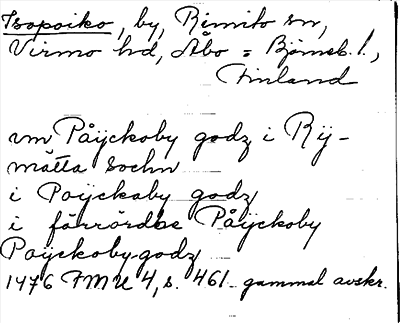 Isopoiko, by, Rimito sn,
Virmo hd, Åbo = Björneb. l.,
Finland
um Påÿckoby godz i Rÿ-
mätta sochn
i Poÿckaby godz
i förrördhe Påÿckoby
Poÿckoby godz
1476 FMU 4, s. 461 gammal avskr.